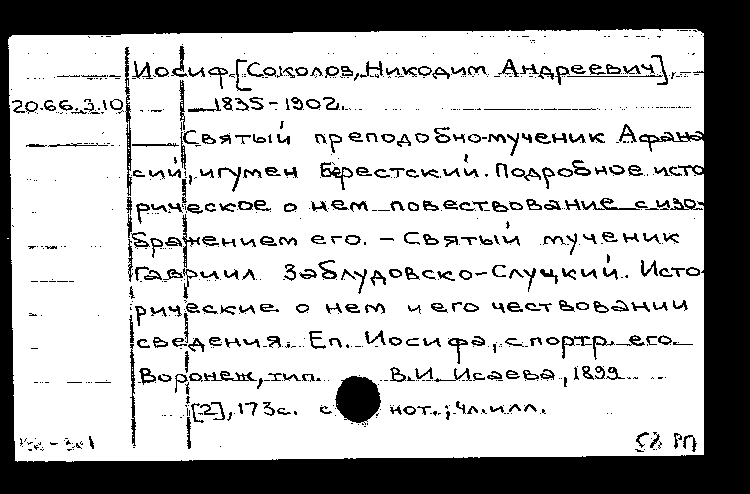 Иосиф [Соколов, Никодим Андреевич],
20.66.3.10 1835-1902.
Святый преподобно-мученик Афана
сий, игумен Берестский. Подробное исто
рическое о нем повествование с изо-
бражением его. - Святый мученик
Гавриил Заблудовско-Слуцкий. Исто-
рические о нем и его чествовании
сведения. Еп. Иосифа, с портр. его.
Воронеж, тип. В.И. Исаева, 1899
[2], 173с. с нот.; 4л.илл.
58 РП